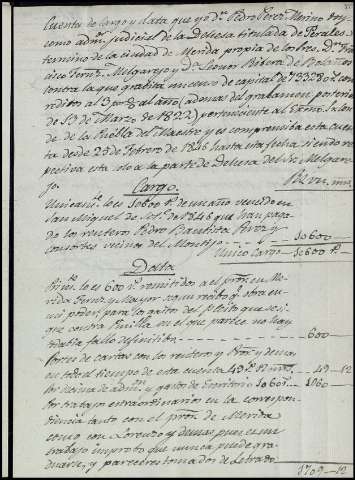 Cuenta de cargo y data que yo Dn. Pedro Perez Merino doy
como admor. judicial de la Dehesa titulada de Perales,
termino de la ciudad de Merida propia de los Sres. Dn. Fran
cisco Fern. Melgarejo y Da. Leonor Ribera de Bolaños
contra la que gravita un censo de capital de
reditos al 3 por % al año (ademas del gravamen posterior
de 13 de Marzo de 1822) perteneciente al Exmo. Sr. Con
de de la Puebla del Maestre y es comprensiva esta cuen
ta desde 25 de Febrero de 1846 hasta esta fecha, siendo res
pectiva esta solo a la parte de Dehesa del Sr. Melgare
jo.
Cargo. Rs. von. mrs.
Unicamte. lo es 10600 rs. de un año vencido en
San Miguel de Set. de 1846 que han paga
do los renteros Pedro Bautista Perez y
consortes vecinos del Montijo 10600
Unico Cargo 10600 rs.
Data
Primte. lo es 600 rs. remitidos al pror. en Me
rida Fernz. y Mayor segun recibo qe. obra en
mi poder, para los gastos del pleito que se si
gue contra Padilla en el que parece no hay
todavia fallo definitivo 600
Portes de cartas con los renteros y Pror. y demas
en todo el tiempo de esta cuenta 49 rs. 12 mrs. 49 12
Por decima de admon. y gastos de Escritorio 1060 rs. 1060
Por trabajos extraordinarios en la correspon
diencia tanto con el pror. de Merida
como con Lorenzo y demas pues es un
trabajo improbo que nunca puede gra
duarse, y pareceres tomados de Letrado
1709 12